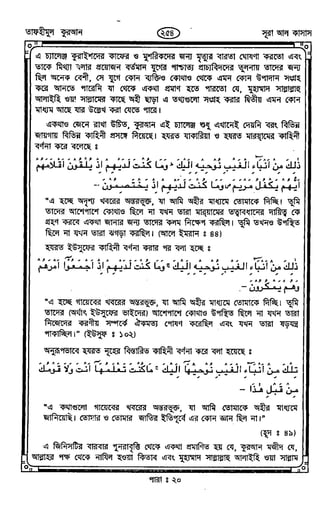 তাফহীমুল কুরআন
২৫৪
সূরা আল কাসাস
এ চ্যালেঞ্জ কুরাইশদের কাফের ও মুশরিকদের জন্য মৃত্যুর বারতা ঘোষণা করতো এবং
তাকে মিথ্যা বলার প্রয়োজন বর্তমান যুগের পাশ্চাত্য প্রাচ্যবিদদের তুলনায় তাদের জন্য
ছিল অনেক বেশী, সে যুগে কোন ব্যক্তিও কোথাও থেকে এমন কোন উপাদান সংগ্রহ
করে আনতে পারেনি যা থেকে একথা প্রমাণ হতে পারতো যে, মুহাম্মাদ সাল্লাল্লাহু
আলাইহি ওয়া সাল্লামের কাছে অহী ছাড়া এ তথ্যগুলো সংগ্রহ করার দ্বিতীয় এমন কোন
মাধ্যম আছে যার উল্লেখ করা যেতে পারে।
একথাও জেনে রাখা উচিত, কুরআন এই চ্যালেঞ্জ শুধু এখানেই দেয়নি বরং বিভিন্ন
জায়গায় বিভিন্ন কাহিনী প্রসংগে দিয়েছে। হযরত যাকারিয়া ও হযরত মারয়ামের কাহিনী
বর্ণনা করে বলেছে :
ذٰلِكَ مِنْ اَنْۢبَآءِ الْغَيْبِ نُوْحِيْهِ اِلَيْكَ ؕ وَمَا كُنْتَ لَدَيْهِمْ اِذْ يُلْقُوْنَ اَقْلَامَهُمْ
اَيُّهُمْ يَكْفُلُ مَرْيَمَ ۪ وَمَا كُنْتَ لَدَيْهِمْ اِذْ يَخْتَصِمُوْنَ –
"এ হচ্ছে অদৃশ্য খবরের অন্তরভুক্ত, যা আমি অহীর মাধ্যমে তোমাকে দিচ্ছি। তুমি
তাদের আশেপাশে কোথাও ছিলে না যখন তারা মারয়ামের তত্ত্বাবধানের দায়িত্ব কে
গ্রহণ করবে একথা জানার জন্য তাদের কলম নিক্ষেপ করছিল। তুমি তখনও উপস্থিত
ছিলে না যখন তারা ঝগড়া করছিল। (আলে ইমরান : ৪৪)
হযরত ইউসুফের কাহিনী বর্ণনা করার পর বলা হচ্ছে :
ذٰلِكَ مِنْ اَنْۢبَآءِ الْغَيْبِ نُوْحِيْهِ اِلَيْكَ ۚ وَمَا كُنْتَ لَدَيْهِمْ اِذْ اَجْمَعُوْٓا اَمْرَهُمْ
وَهُمْ يَمْكُرُوْنَ –
"এ হচ্ছে গায়েবের খবরের অন্তরভুক্ত, যা আমি অহীর মাধ্যমে তোমাকে দিচ্ছি। তুমি
তাদের (অর্থাৎ ইউসুফের ভাইদের) আশেপাশে কোথাও উপস্থিত ছিলে না যখন তারা
নিজেদের করণীয় সম্পর্কে ঐকমত্য পোষণ করেছিল এবং যখন তারা ষড়যন্ত্র
পাকাচ্ছিল।" (ইউসুফ : ১০২)
অনুরূপভাবে হযরত নূহের বিস্তারিত কাহিনী বর্ণনা করে বলা হয়েছে :
تِلْكَ مِنْ اَنْۢبَآءِ الْغَيْبِ نُوْحِيْهَآ اِلَيْكَ ۚ مَا كُنْتَ تَعْلَمُهَآ اَنْتَ وَلَا قَوْمُكَ
مِنْ قَبْلِ هٰذَا –
"এ কথাগুলো গায়েবের খবরের অন্তরভুক্ত, যা আমি তোমাকে অহীর মাধ্যমে
জানিয়েছি। তোমার ও তোমার জাতির ইতিপূর্বে এর কোন জ্ঞান ছিল না।"
(হূদ : ৪৯)
এ জিনিসটির বারবার পুনরাবৃত্তি থেকে একথা প্রমাণিত হয় যে, কুরআন মজীদ যে,
আল্লাহর পক্ষ থেকে নাযিল হওয়া কিতাব এবং মুহাম্মাদ সাল্লাল্লাহু আলাইহি ওয়া সাল্লাম
পারা : ২০